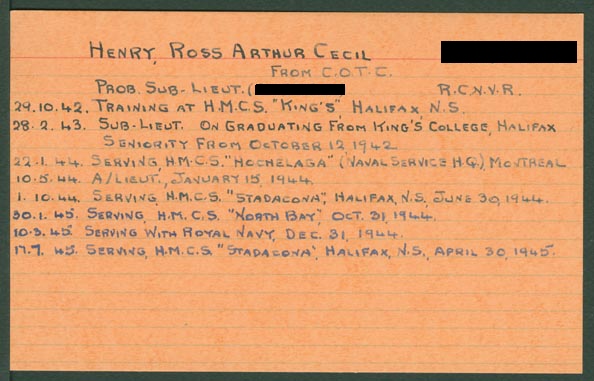 HENRY, ROSS ARTHUR CECIL
FROM C.O.T.C.
PROB. SUB-LIEUT. ( R.C.N.V.R.
29.10.42. TRAINING AT H.M.C.S. "KING'S" HALIFAX N.S.
28.2.43. SUB-LIEUT. ON GRADUATING FROM KING'S COLLEGE, HALIFAX
SENIORITY FROM OCTOBER 12, 1942
22.1.44. SERVING H.M.C.S. "HOCHELAGA" (NAVAL SERVICE H.Q.) MONTREAL
10.5.44. A/LIEUT., JANUARY 15, 1944.
1.10.44. SERVING, H.M.C.S. "STADACONA", HALIFAX, N.S., JUNE 30, 1944.
30.1.45. SERVING, H.M.C.S. "NORTH BAY", OCT. 31, 1944.
10.3.45. SERVING WITH ROYAL NAVY, DEC. 31, 1944.
17.7.45. SERVING, H.M.C.S. "STADACONA", HALIFAX, N.S., APRIL 30, 1945.